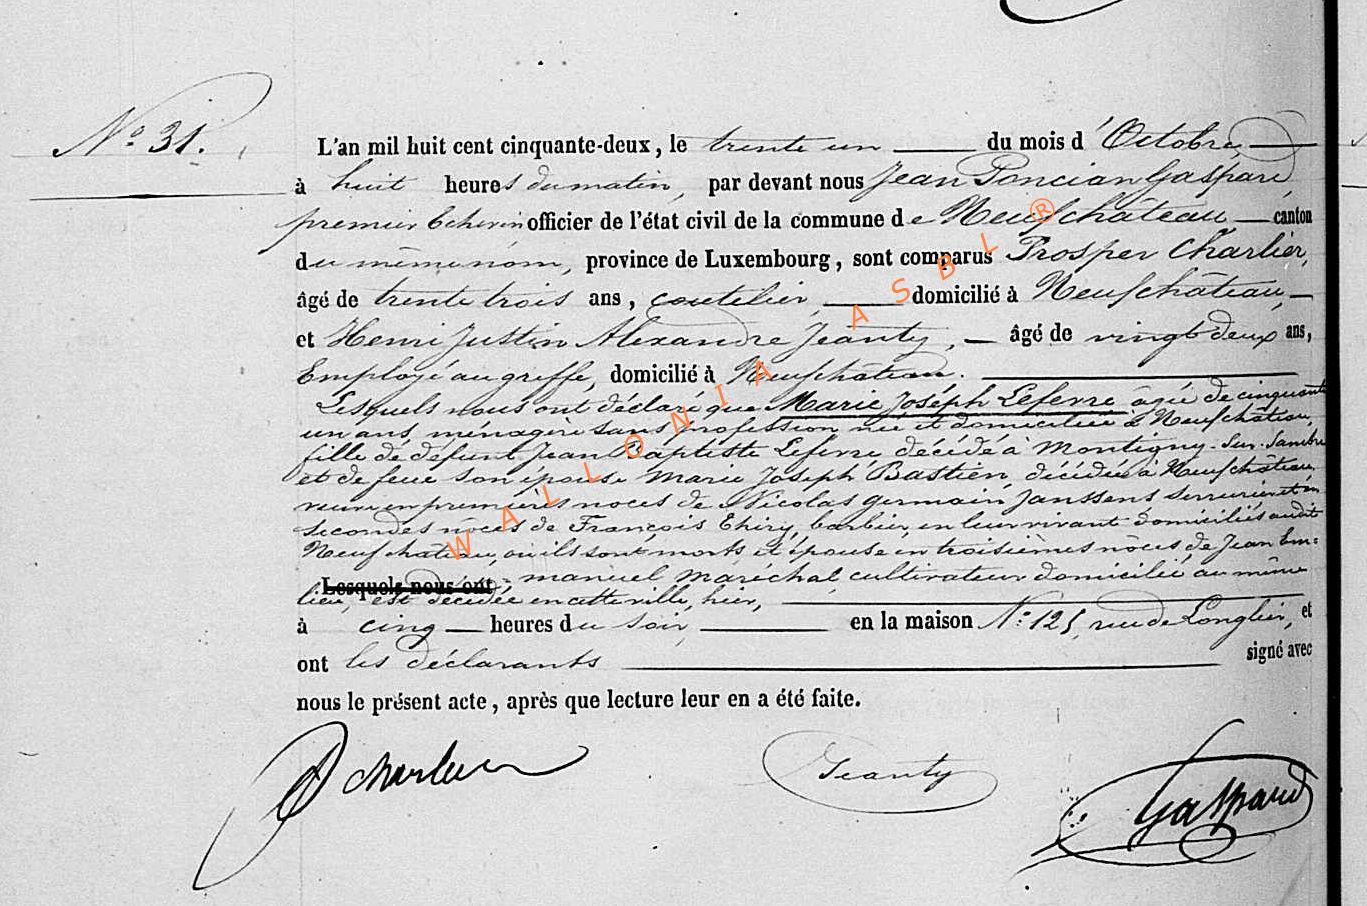 N° 31.
L'an mil huit cent cinquante-deux, le trente un du mois d'Octobre
à huit heures du matin, par devant nous Jean Poncian Gaspard,
premier Echevin officier de l'état civil de la commune de Neufchâteau canton
du même nom, province de Luxembourg, sont comparus Prosper Charlier,
âgé de trente trois ans, coutelier, domicilié à Neufchâteau,
et Henri Justin Alexandre Jeanty, âgé de vingt deux ans,
Employé au greffe, domicilié à Neufchâteau.
Lesquels nous ont déclaré que Marie Joséph Lefevre agée de cinquante
un ans, ménagère sans profession née et domiciliée à Neufchâteau,
fille de défunt Jean Baptiste Lefevre décédé à Montigny-Sur-Sambre
et de feue son épouse Marie Joseph Bastien, décédée à Neufchâteau,
veuve en premières noces de Nicolas Germain Janssens serrurier et en
secondes noces de François Thiry, barbier, en leur vivant domiciliés audit
Neufchâteau, où ils sont morts et épouse en troisièmes noces, de Jean Em=
Lesquels nous ont, =manuel Maréchal cultivateur domicilié au même
lieu, est décédée en cette ville, hier,
à cinq heures du soir, en la maison N°: 125, rue de Longlier, et
ont les déclarants signé avec
nous le présent acte, après que lecture leur en a été faite.
Charlier Jeanty Gaspard
WALLONIA ASBL ®